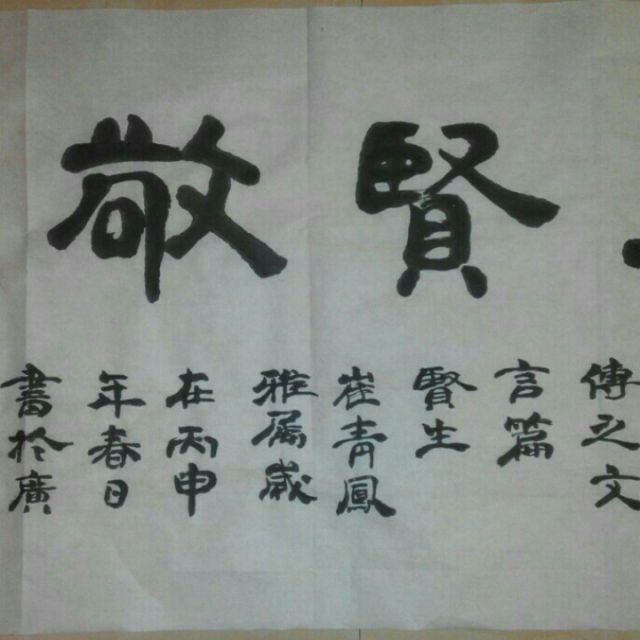 賢
敬
傳之文
言篇
賢生
崔青鳳
雅屬歲
在丙申
年春日
書於廣